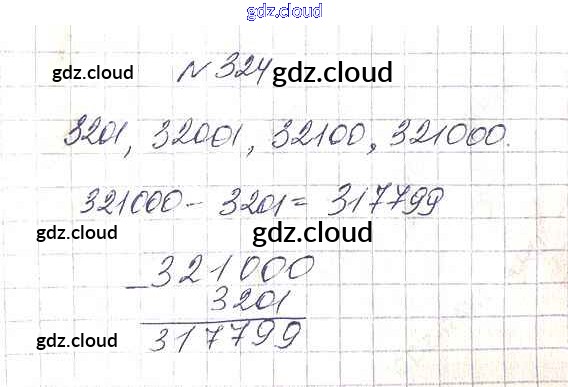 gdz.cloud
№ 324
gdz.cloud gdz.cloud
3201, 32001, 32100, 321000.
321000 - 3201 = 317799
gdz.cloud gdz.cloud
- 321000
3201
317799
gdz.cloud